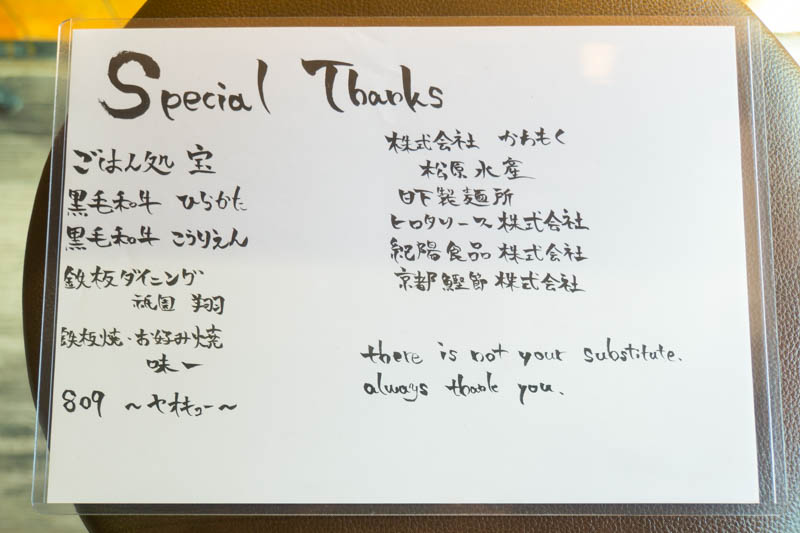 Special Thanks
ごはん処 宝
黒毛和牛 ひらかた
黒毛和牛 こうりえん
鉄板ダイニング
祇園 翔
鉄板焼・お好み焼
味一
809 〜ヤオキュー〜
株式会社 かわもく
松原水産
日下製麺所
ヒロタソース株式会社
紀陽食品株式会社
京都鰹節株式会社
there is not your substitute.
always thank you.